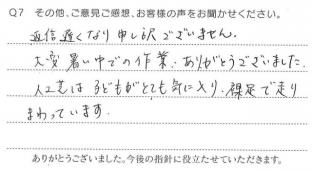 Q7 その他、ご意見ご感想、お客様の声をお聞かせください。
返信遅くなり申し訳ございません。
大変暑い中での作業、ありがとうございました。
人工芝は子どもがとても気に入り、裸足で走り
まわっています。
ありがとうございました。今後の指針に役立たせていただきます。